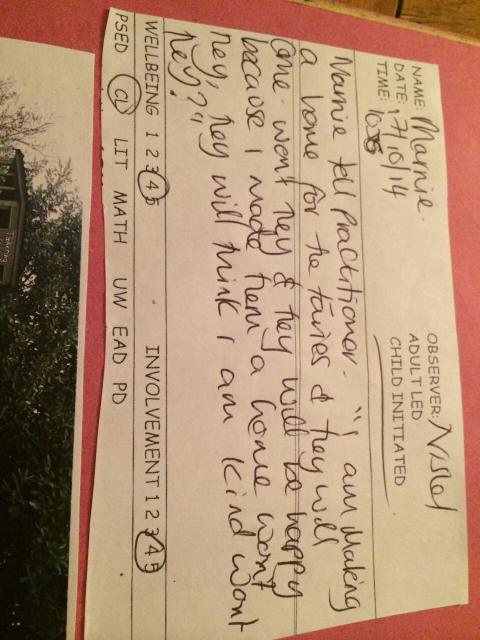 NAME: Marnie.
DATE: 17/10/14
TIME:
OBSERVER:
ADULT LED
CHILD INITIATED
Marnie tell Practitioner. "I am making
a home for the fairies & they will
come won't they & they will be happy
because I made them a home wont
they, they will think I am kind wont
they?"
WELLBEING 1 2 3 4 5 INVOLVEMENT 1 2 3 4 5
PSED CL LIT MATH UW EAD PD